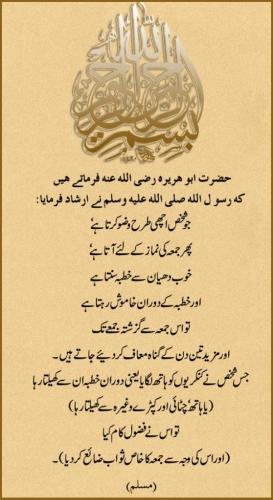 بسم الله الرحمن الرحيم
حضرت ابو هريره رضى الله عنه فرماتے هيں
كه رسول الله صلى الله عليه وسلم نے ارشاد فرمايا:
جو شخص اچھی طرح وضو کرتا ہے‘
پھر جمعہ کی نماز کے لئے آتا ہے‘
خوب دھیان سے خطبہ سنتا ہے
اور خطبہ کے دوران خاموش رہتا ہے
تو اس جمعہ سے گزشتہ جمعے تک
اور مزید تین دن کے گناہ معاف کر دیئے جاتے ہیں۔
جس شخص نے کنکریوں کو ہاتھ لگایا یعنی دوران خطبہ ان سے کھیلتا رہا
(یا ہاتھ‘ چٹائی اور کپڑے وغیرہ سے کھیلتا رہا)
تو اس نے فضول کام کیا
(اور اس کی وجہ سے جمعہ کا خاص ثواب ضائع کر دیا)۔
(مسلم)